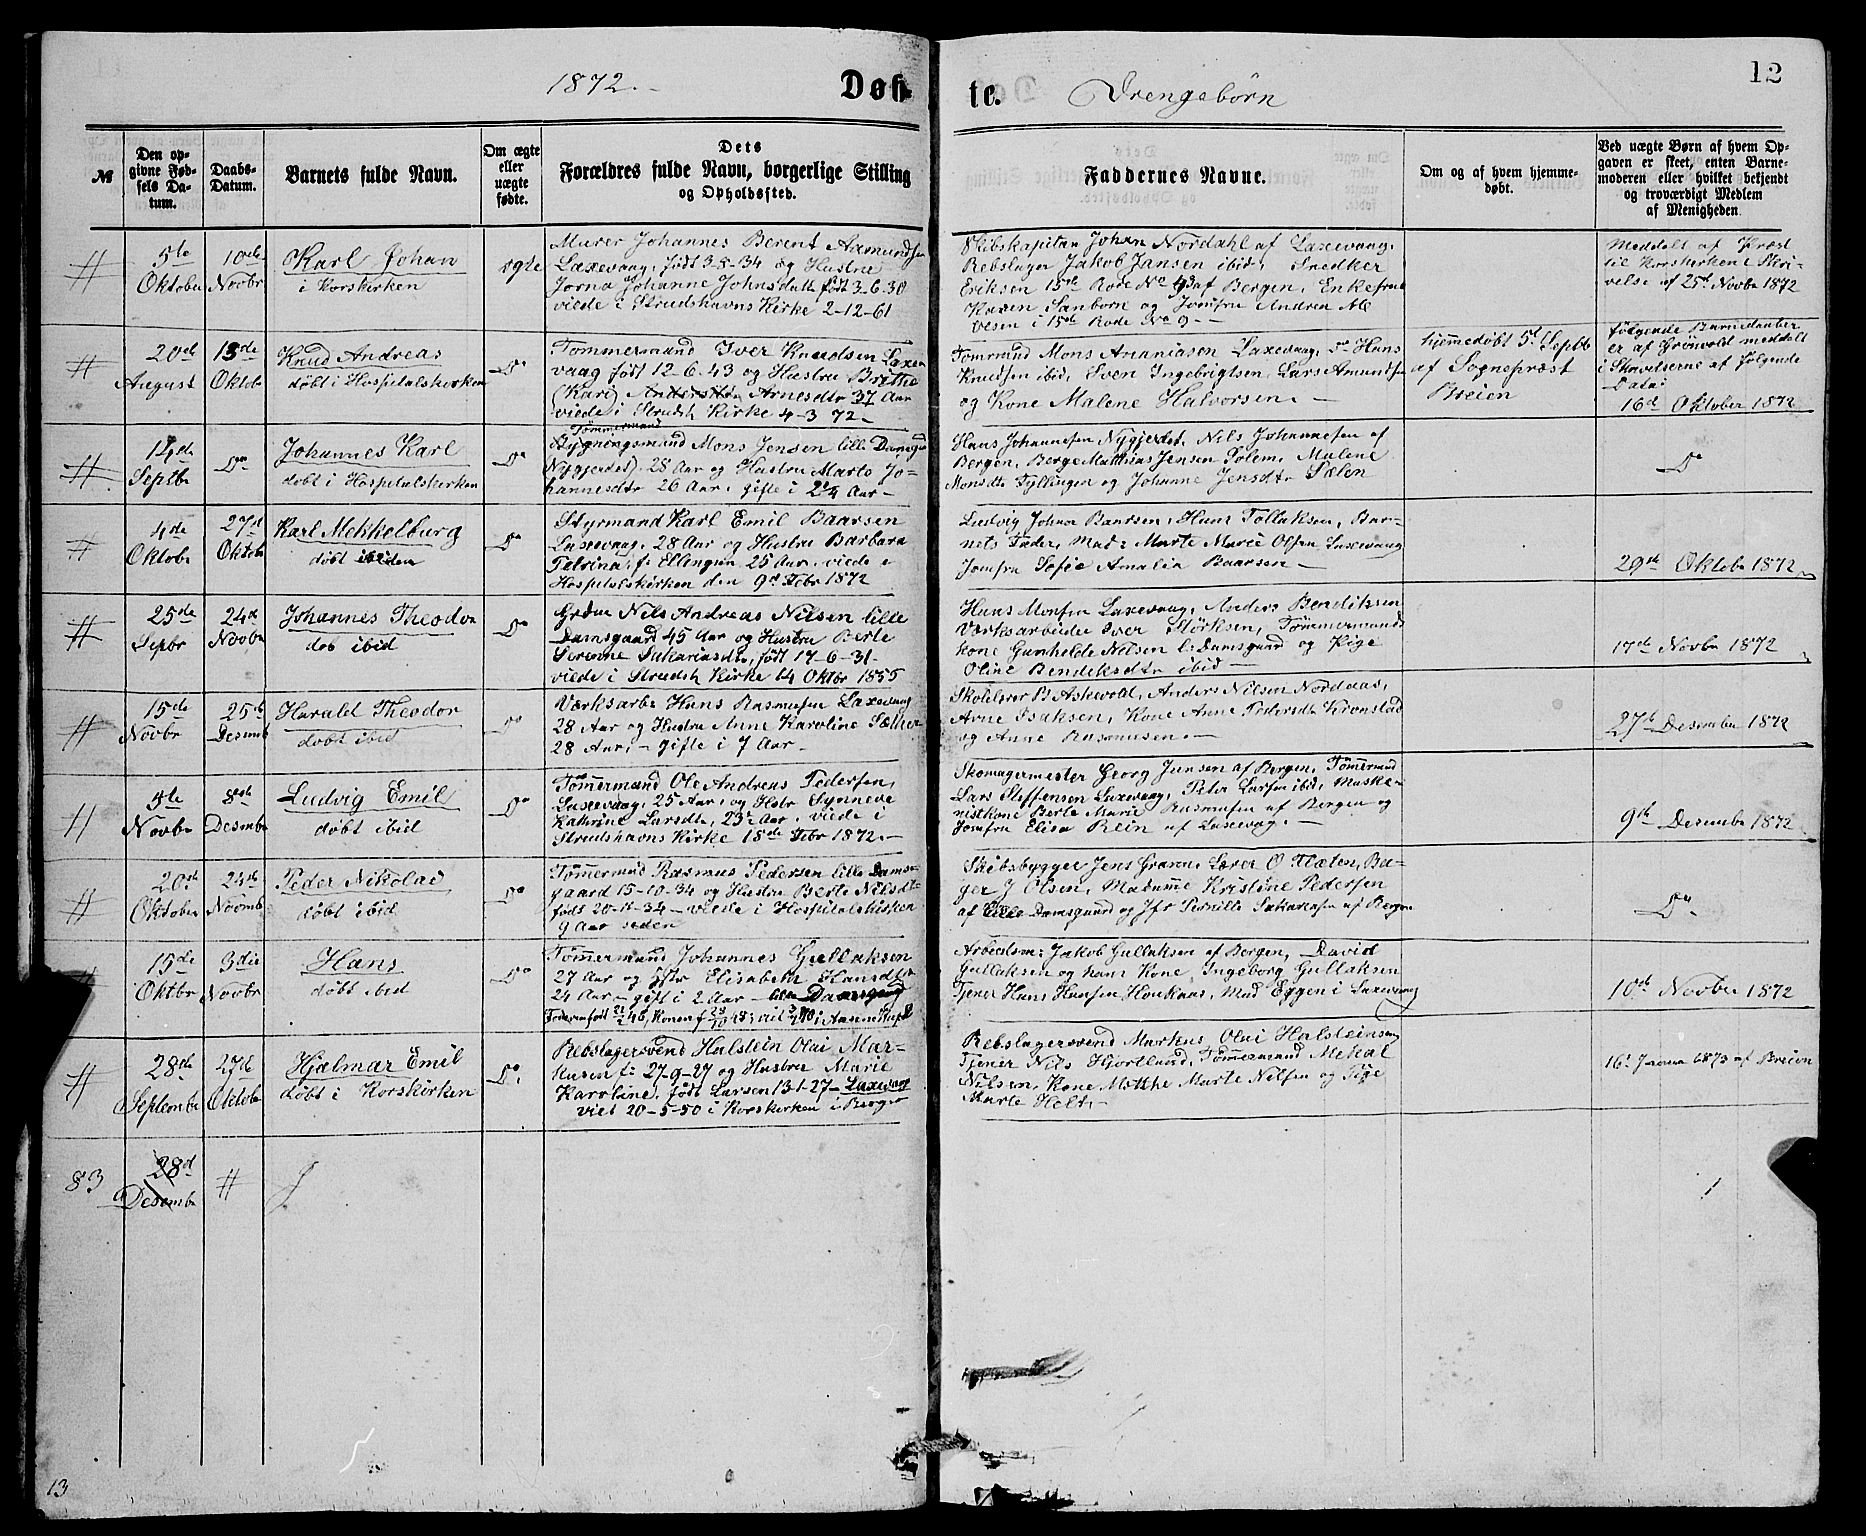 1872.
Døbte.
Drengebørn
12
№
Den opgivne Fødsels Datum.
Daabs-Datum.
Barnets fulde Navn.
Om ægte eller uægte fødte.
Dets Forældres fulde Navn, borgerlige Stilling og Opholdssted.
Faddernes Navne.
Om og af hvem hjemmedøbt.
Ved uægte Børn af hvem Opgaven er skeet, enten Barnemoderen eller hvilket bekjendt og troværdigt Medlem af Menigheden.
#
5te
Oktober
10de
Novbr
Karl Johan
i Korskirken
ægte
Murer Johannes Berent Aamundsen
Laxevaag, født 3-8-34 og Hustru
Jorna Johanne Johnsdatt født 3-6-30
viede i Strudshavns Kirke 2-12-61
Skibskapitan Johan Nordahl af Laxevaag,
Rebslager Jakob Jansen ibid; Snedker
Eriksen 15de Rode No 93 af Bergen, Enkefrue
Karen Sanborn og Jomfru Andrea
i 15de Rode No 9
Meddelt af Præst
til Korskirken i Skri-
velse af 25de Novbr 1872
#
20de
August
13de
Oktobr
Knud Andreas
døbt i Hospitalskirken
Do
Tømmermand Iver Knudsen Laxe-
vaag født 12-6-43 og Hustru Brithe
(Kari) Arnesdtr 37 Aar
viede i Strudsh Kirke 4-3 72
Tømrmnd Mons Ananiasen Laxevaag, Do Hans
Knudsen ibid, Sven Ingebrigtsen, Lars Amundsen
og Kone Malene Halvorsen.
hjemmedøbt 5d Septbr
af Sogneprest
Breien
følgende Barnedaaber
er af Grønvold meddelt
i Skrivelserne af følgende
Data:
16de Oktober 1872
#
14de
Septbr
Do
Johannes Karl
døbt i Hospitalskirken
Do
Tømmermand
Bygningsmand Mons Jensen lille Damsgrd
(Nygjerdet) 28 Aar og Hustru Marte Jo-
hannesdtr 26 Aar, gifte i 2¼ Aar
Hans Johannesen Nygjerdet, Nils Johannesen af
Bergen, Berge Mathias Jensen Solem, Malene
Monsdtr Fyllingen og Johanne Jensdtr Sælen
Do
#
4de
Oktobr
27de
Oktobr
Karl Mekkelburg
døbt ibiden
Do
Styrmand Karl Emil Baarsen
Laxevaag, 28 Aar og Hustru Barbara
Petrina f: Ellingsen 25 Aar, viede i
Hospitalskirken den 9de Febr 1872
Ludvig Johan Baarsen, Hans Tollaksen, Bar-
nets Fader, Mad: Marte Marie Olsen Laxevaag
Jomfru Sofie Amalia Baarsen
29de Oktobr 1872
#
25de
Sepbr
24de
Novbr
Johannes Theodor
døb ibid
Do
Nils Andreas Nilsen lille
Damsgaard 45 Aar og Hustru Berte
Serene Sakariasdtr, født 17-6-31
viede i Strudsh Kirke 14 Oktbr 1855
Hans Monsen Laxevaag, Anders Bendiksen
Værksarbeider Iver Störksen, Tømmermands
kone Gunhilde Nilsen l: Damsgaard og Pige
Oline Bendiksdtr ibid
17de Novbr 1872
#
15de
Novbr
25de
Desembr
Harald Theodor
døbt ibid
Do
Værksarb Hans Rasmusen Laxevaag
28 Aar og Hustru Anne Karoline Sætter
28 Aar, gifte i 7 Aar
Skolelærer B Askevold, Anders Nilsen Nordaas,
Arne Isaksen, Kone Anne Pedersdtr Kronstad
og Anne Rasmusen.
27de Desember 1872
#
5te
Novbr
8de
Desembr
Ludvig Emil
døbt ibid
Do
Tømmermand Ole Andreas Pedersen,
Laxevaag, 25 Aar, og Hstr Synneve
Kathrine Larsdtr, 23½ Aar, viede i
Strudshavns Kirke 18de Febr 1872.
Skomagermester Georg Jensen af Bergen, Tømmermand
Lars Steffensen Laxevaag, Peter Larsen ibid, Maske-
nistkone Berte Marie Rasmusen af Bergen og
Jomfru Elisa Rein af Laxevaag.
9de Desembr 1872
#
20de
Oktober
24de
Novmb
Peder Nikolai
døbt ibid
Do
Tømmermand Rasmus Pedersen lille Dams-
gaard 15-10-34 og Hustru Berte Nilsdtr
født 20-11-34 viede i Hospitalskirken
9 Aar siden
Skibsbygger Jens Gran, Lærer O Flaten, Ba-
ger J Olsen, Madame Kristine Pedersen
af Lille Damsgaard og Jfr Pernille Sakariasen af Bergen
Do
#
15de
Oktbr
3die
Novbr
Hans
døbt ibid
Do
Tømmermand Johannes Gullaksen
27 Aar og Hstr Elisabeth Hansdtr
24 Aar gift i 2 Aar lille Damsgaard
Arbeidsm: Jakob Gullaksen af Bergen, David
Gullaksen og hans Kone, Ingeborg Gullaksen
Tjener Hans Hansen Haukaas, Mad Eggen i Laxevaag
10de Novbr 1872
#
28de
Septembr
27de
Oktobr
Hjalmar Emil
døbt i Korskirken
Do
Rebslagersvend Halstein Olai Mar-
kusen f: 27-9-27 og Hustru Marie
Karoline, født Larsen 13-1-27 Laxevaag
viet 20-5-50 i Korskirken i Bergen
Rebslagersvend Markus Olai Halsteinsen
Tjener Nils Hjortland, Tømmermand Mekal
Nilsen, Kone Mette Marte Nilsen og Pige
Marte Holt.
16de Januar 1873 af Breien
83
28d
Desembr
#
13